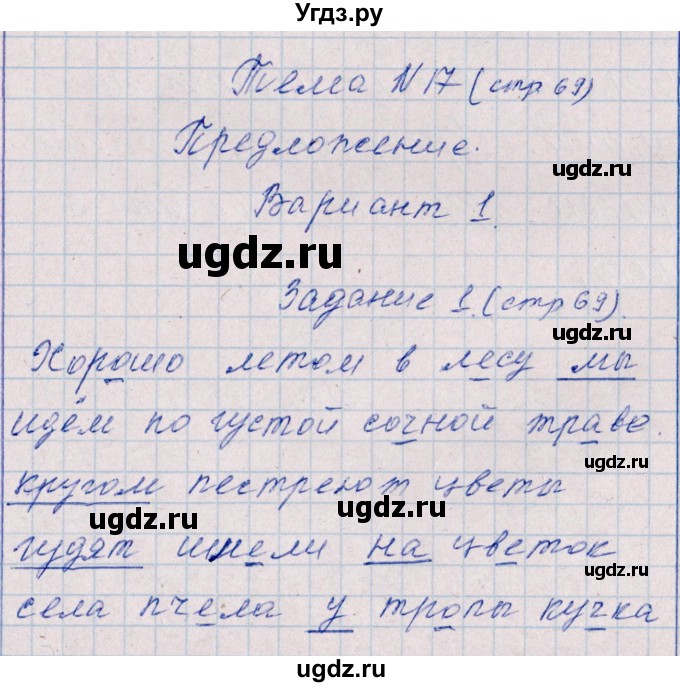 Угдз.ру
Тема N 17 (стр 69)
Предложение.
ugdz.ru
Вариант 1.
ugdz.ru
ugdz.ru
Задание 1. (стр 69).
ugdz.ru
Хорошо летом в лесу мы
идём по густой сочной траве.
ugdz.ru
кругом пестреют цветы
ugdz.ru
ugdz.ru
гудят шмели на цветок
ugdz.ru
села пчела у тропы кучка
ugdz.ru